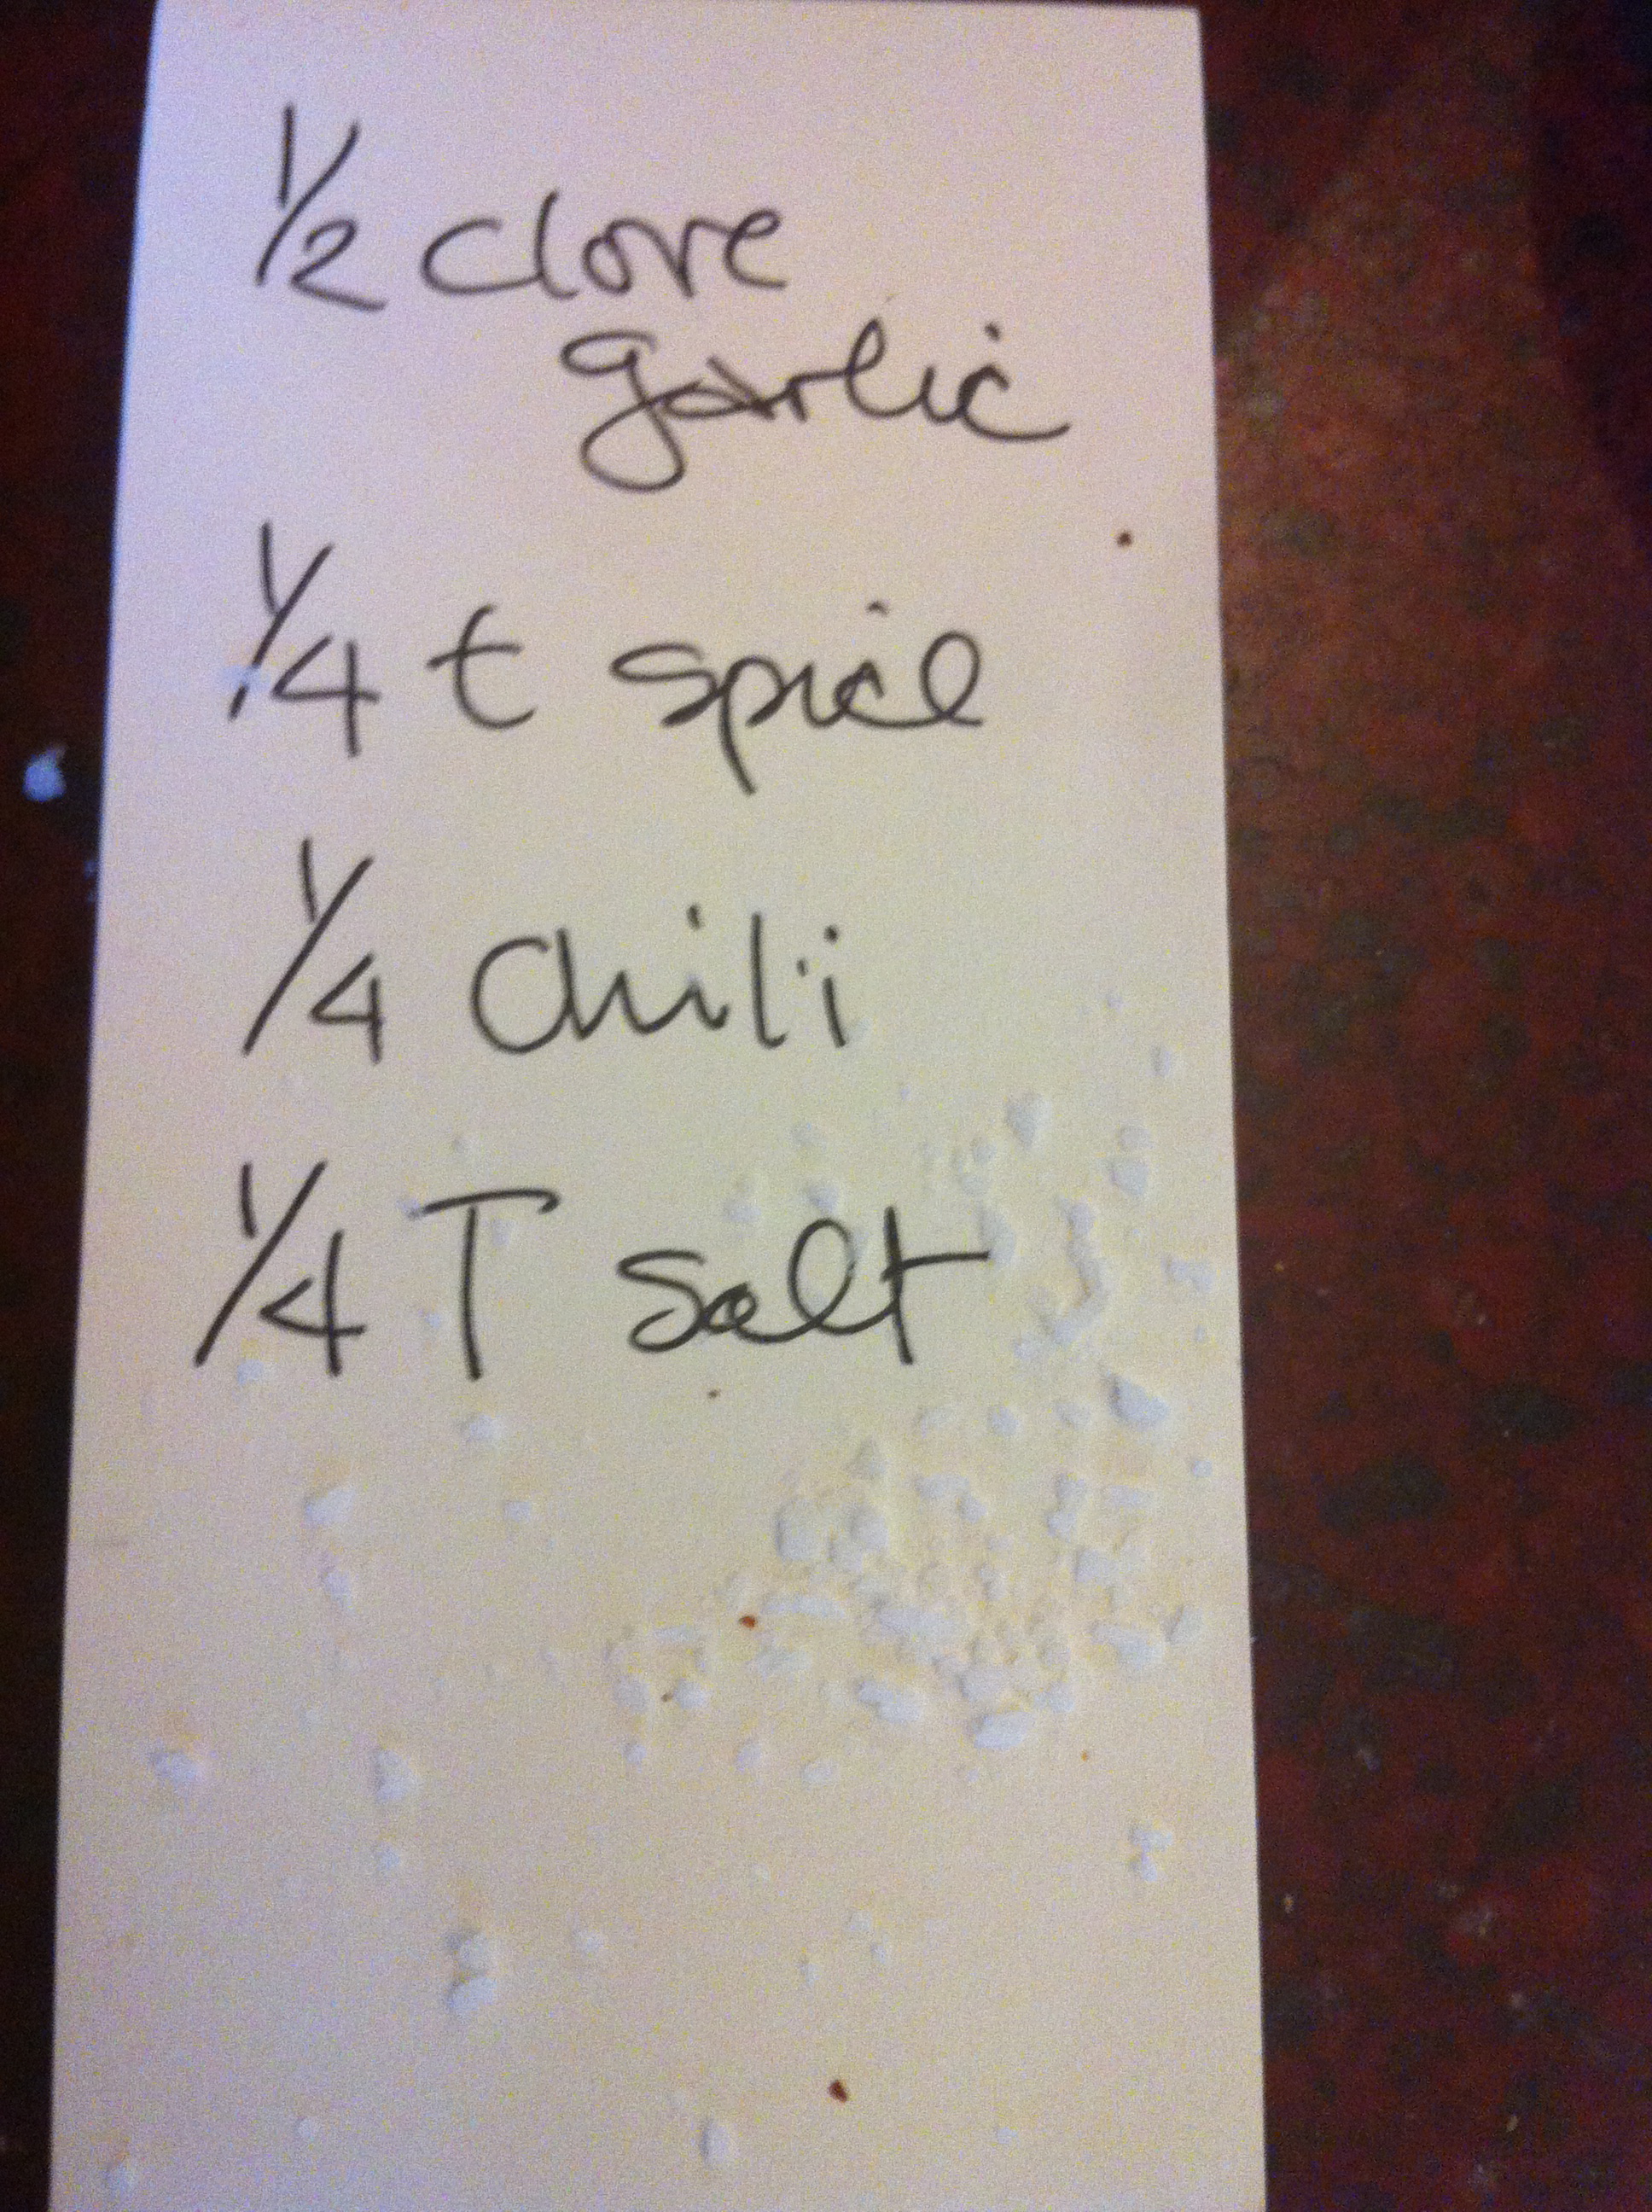 1/2 clove
garlic
1/4 t spice
1/4 chili
1/4 T salt